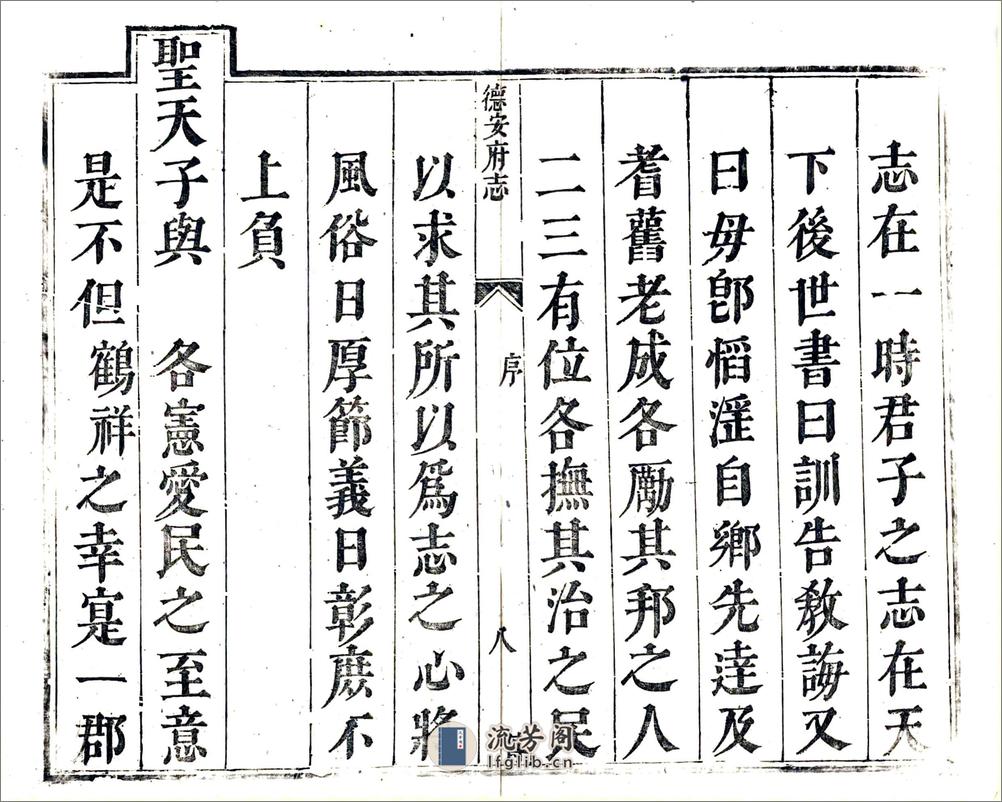 志在一時君子之志在天
下後世書曰訓告教誨又
曰毋卽慆滛自鄉先逹及
耆舊老成各勵其邦之人
二三有位各撫其治之民
德安府志
序
八
以求其所以爲志之心將
風俗日厚節義日彰庶不
上負
聖天子與 各憲愛民之至意
是不但鶴祥之幸寔一郡
流芳阁
lfglib.cn